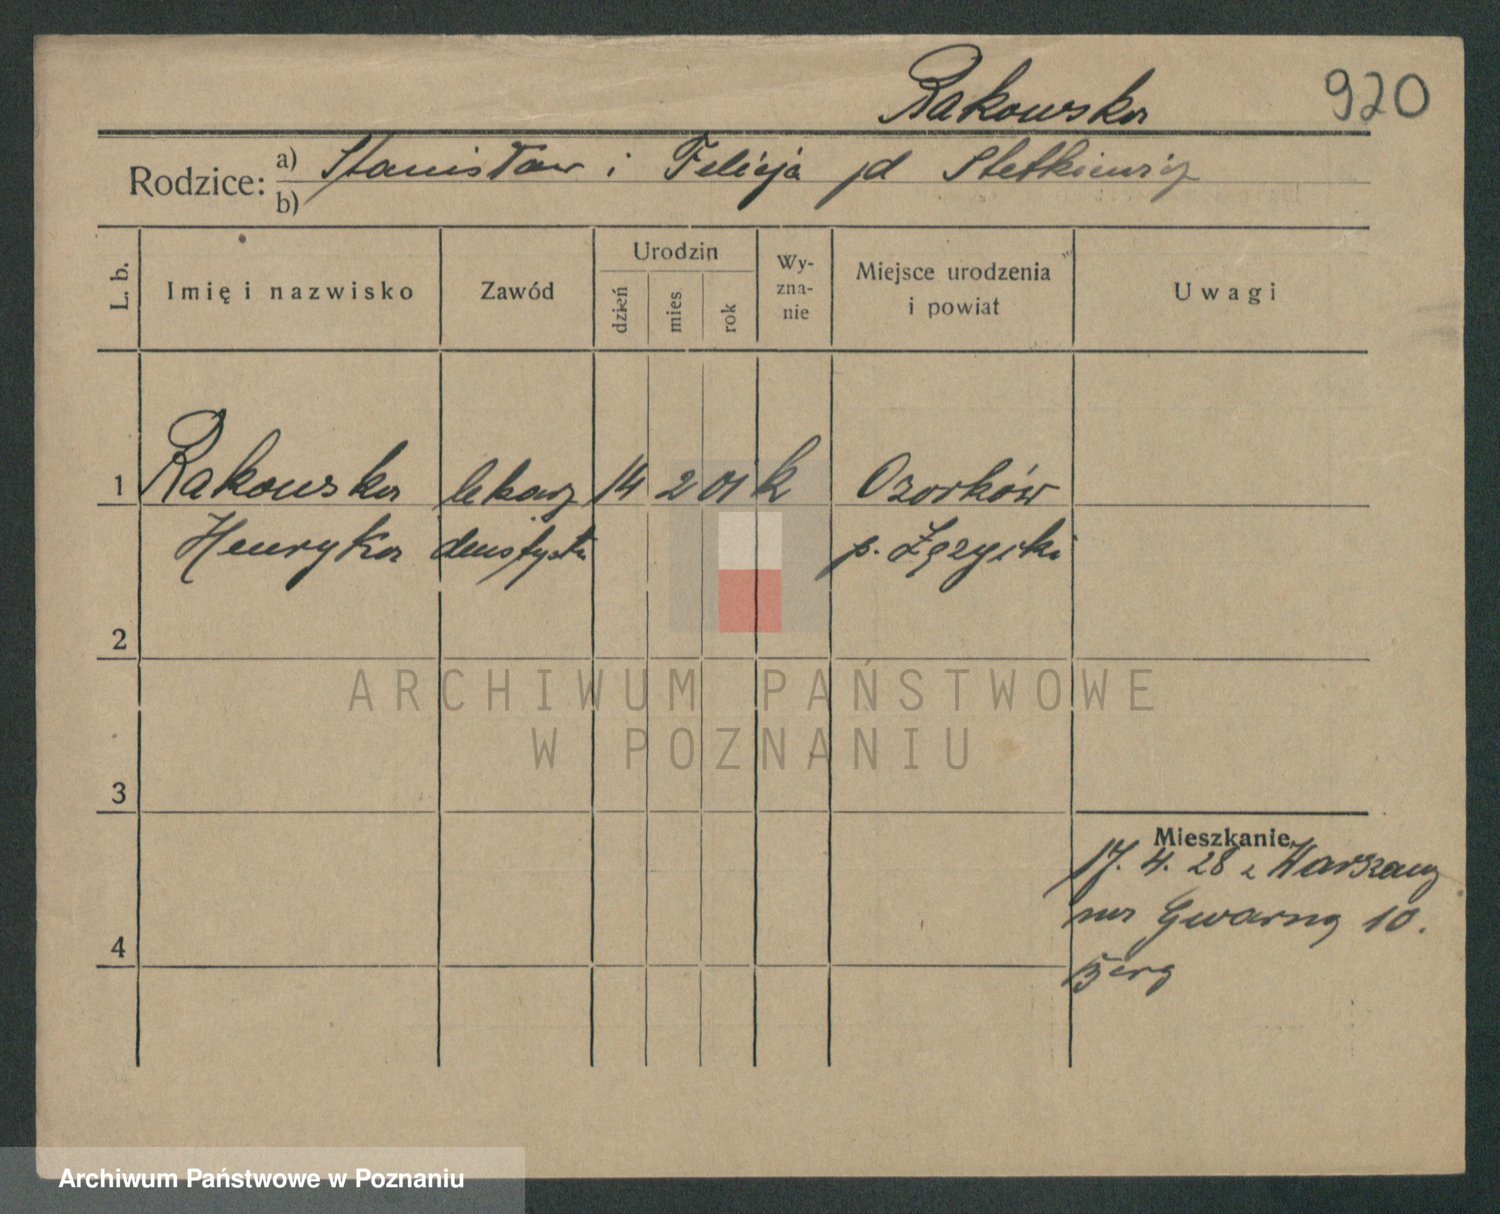 Rakowska 920
Rodzice: a) Stanisław i Felicja jd Stetkiewicz
b)
L. b. Imię i nazwisko Zawód Urodzin dzień mies rok Wy-zna-nie Miejsce urodzenia i powiat Uwagi
1 Rakowska lekarz 14 2 01 k Ozorków
Henryka dentysta p.
2
ARCHIWUM PAŃSTWOWE
W POZNANIU
3
Mieszkanie
17. 4. 28 z Warszawy
na Gwarną 10.
4
Berg
Archiwum Państwowe w Poznaniu